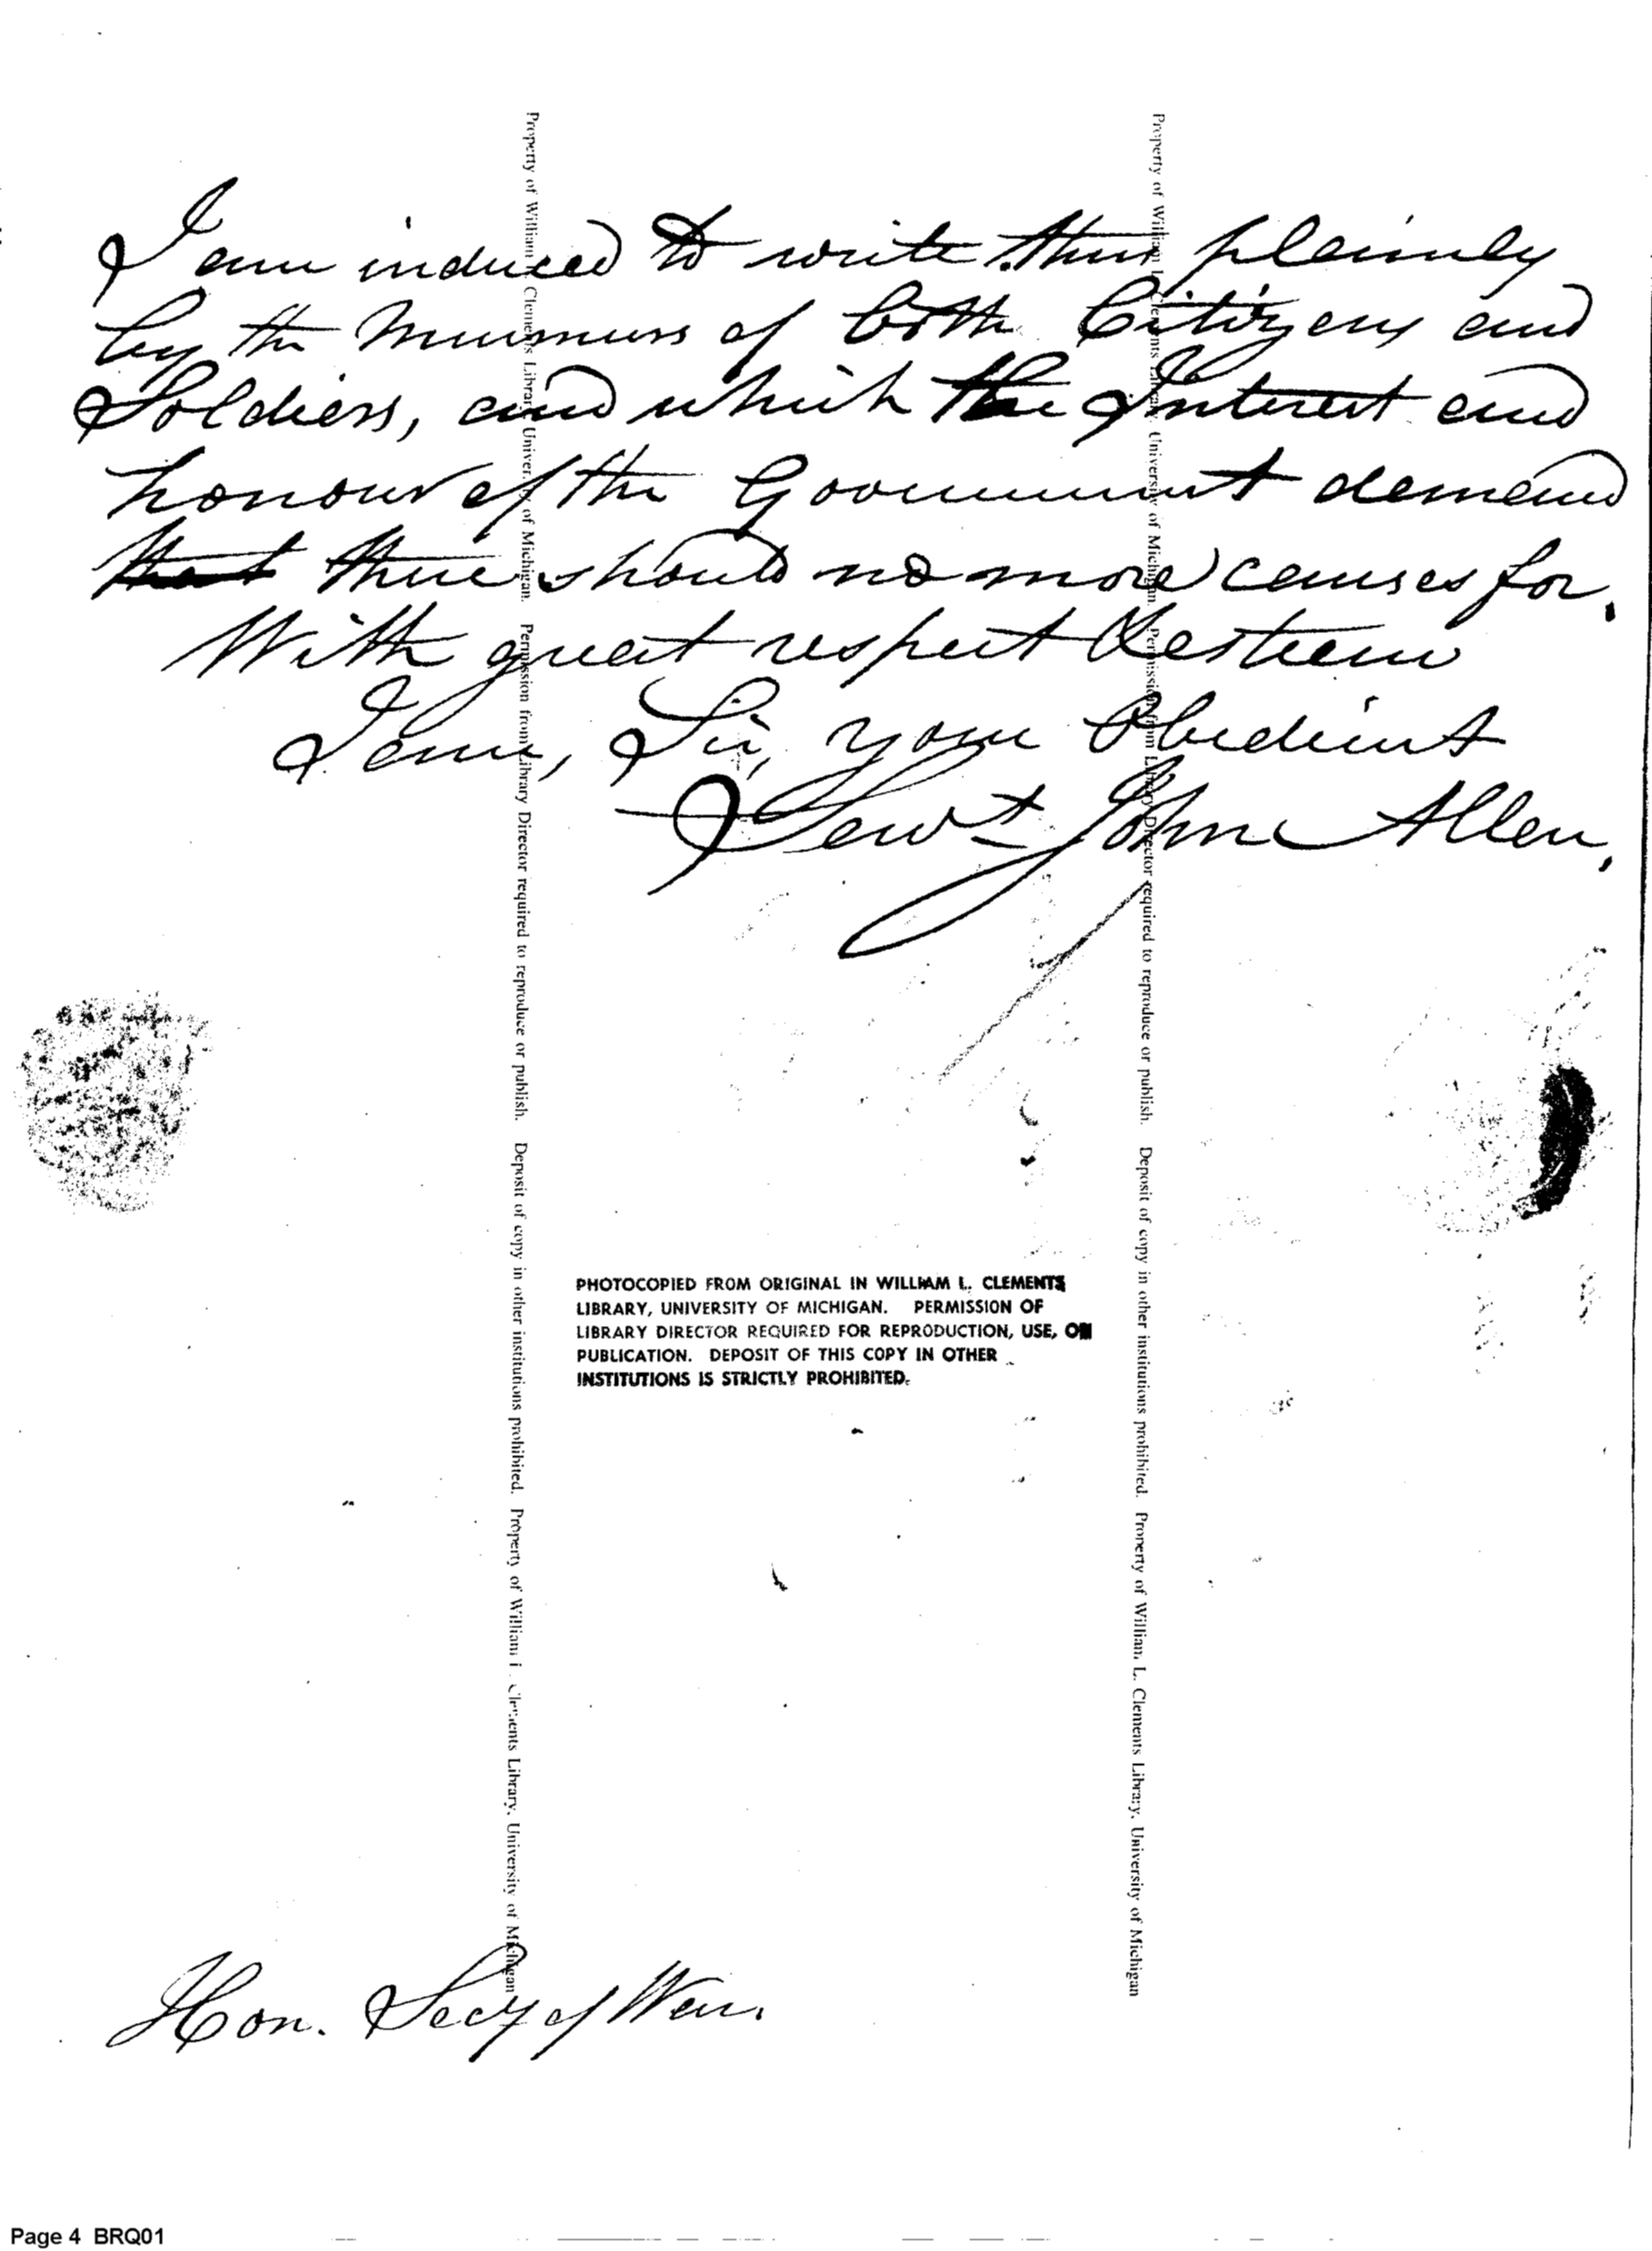 I am induced to write thus plainly
by the Murmurs of both Citizens and
Soldiers, and which the Interest and
honour of the Government demand
that there should no more causes for.
With great respect & esteem
I am, Sir, your Obedient
Servt John Allen.
PHOTOCOPIED FROM ORIGINAL IN WILLIAM L. CLEMENTS
LIBRARY, UNIVERSITY OF MICHIGAN. PERMISSION OF
LIBRARY DIRECTOR REQUIRED FOR REPRODUCTION, USE, OR
PUBLICATION. DEPOSIT OF THIS COPY IN OTHER
INSTITUTIONS IS STRICTLY PROHIBITED.
Hon. Secy of War.
Property of William L. Clements Library, University of Michigan. Permission from Library Director required to reproduce or publish. Deposit of copy in other institutions prohibited. Property of William L. Clements Library, University of Michigan
Property of William L. Clements Library, University of Michigan. Permission from Library Director required to reproduce or publish. Deposit of copy in other institutions prohibited. Property of William L. Clements Library, University of Michigan
Page 4 BRQ01